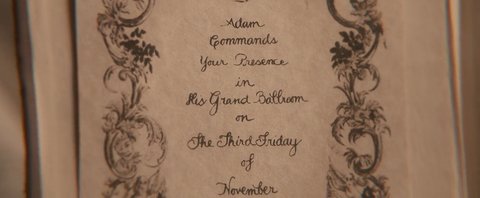 Adam
Commands
Your Presence
in
His Grand Ballroom
on
The Third Friday
of
November